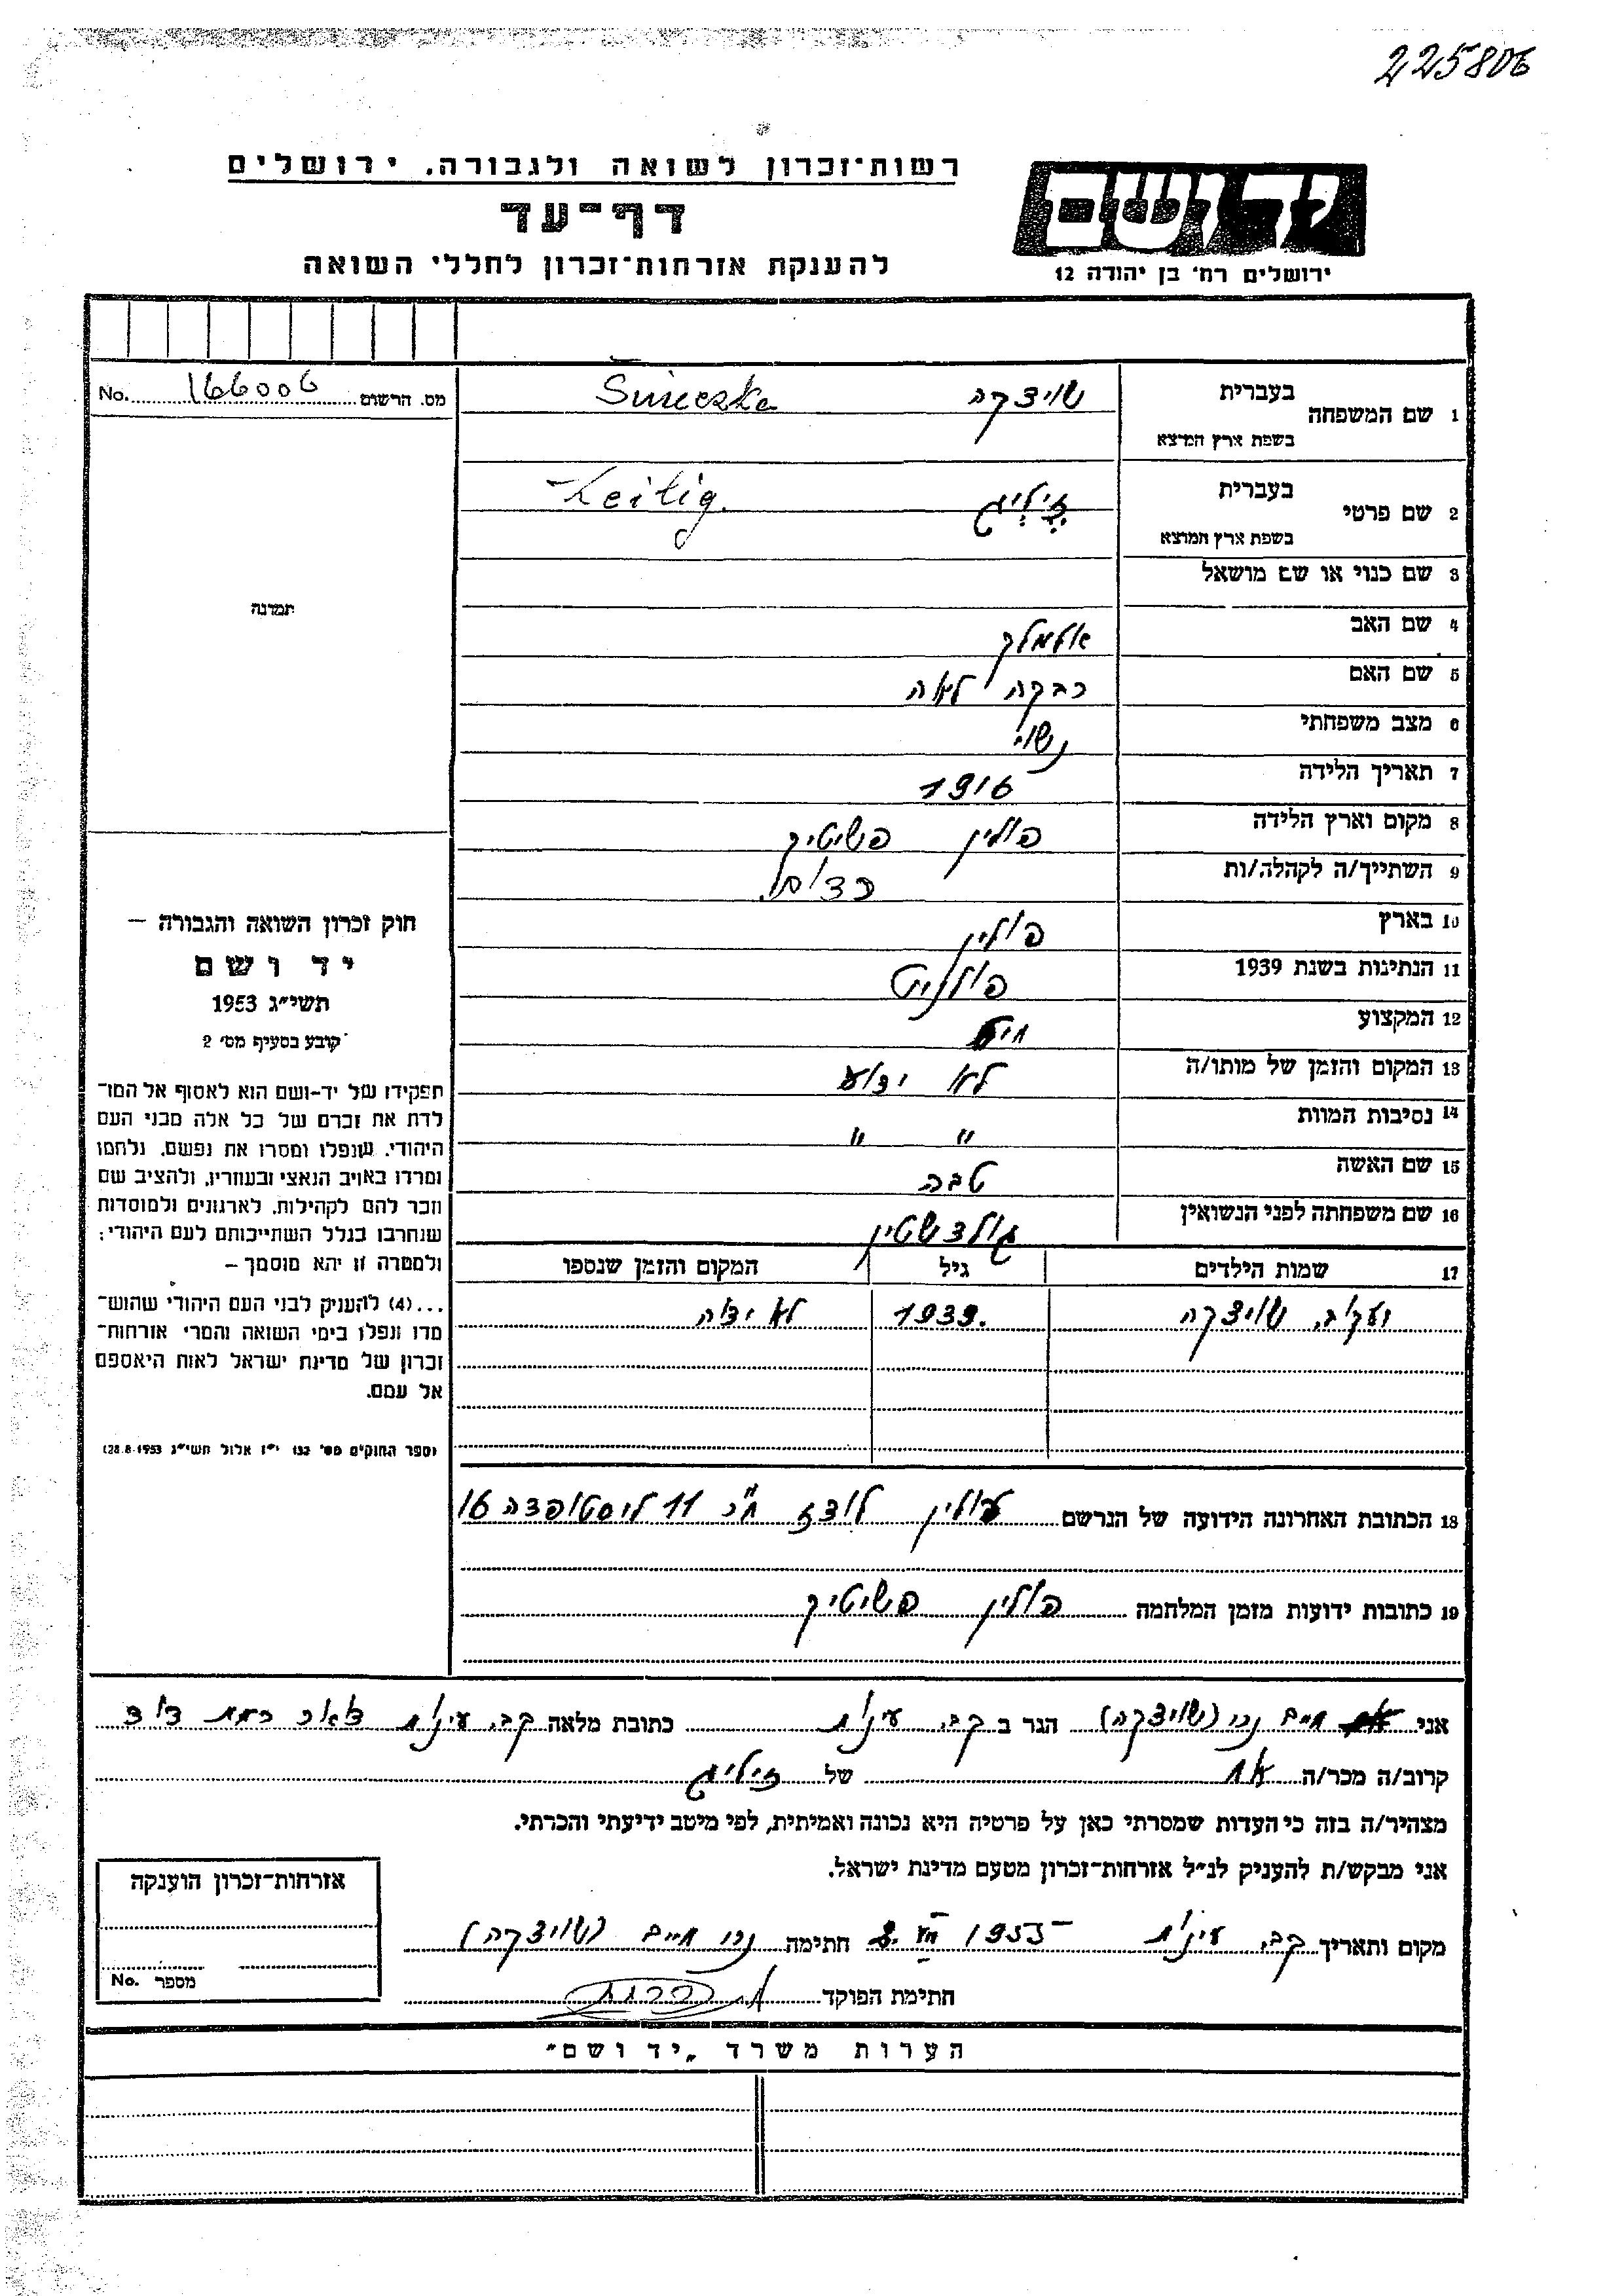 225806
רשות־זכרון לשואה ולגבורה. ירושלים
דף־עד
להענקת אזרחות־זכרון לחללי השואה
יד ושם
ירושלים רח' בן יהודה 12
מס. הרשום 166006 No.
תמונה
חוק זכרון השואה והגבורה –
יד ושם
תשי"ג 1953
קובע בסעיף מס' 2
תפקידו של יד-ושם הוא לאסוף אל המו־
לדת את זכרם של כל אלה מבני העם
היהודי. שנפלו ומסרו את נפשם. נלחמו
ומרדו באויב הנאצי ובעוזריו, ולהציב שם
וזכר להם לקהילות. לארגונים ולמוסדות
שנחרבו בגלל השתייכותם לעם היהודי:
ולמטרה זו יהא מוסמך –
...(4) להעניק לבני העם היהודי שהוש־
מדו ונפלו בימי השואה והמרי אזרחות־
זכרון של מדינת ישראל לאות היאספם
אל עמם.
(ספר החוקים מס' 132 י"ז אלול תשי"ג 28.8.1953)
1 שם המשפחה בעברית שויצקה
בשפת ארץ המוצא
2 שם פרטי בעברית זיליג
בשפת ארץ המוצא
3 שם כנוי או שם מושאל
4 שם האב אלימלך
5 שם האם רבקה לאה
6 מצב משפחתי נשוי
7 תאריך הלידה 1916
8 מקום וארץ הלידה פולין פשיטיק
9 השתייך/ה לקהלה/ות רדום
10 בארץ פולין
11 הנתינות בשנת 1939 פולנית
12 המקצוע חיט
13 המקום והזמן של מותו/ה לא ידוע
14 נסיבות המוות " "
15 שם האשה טבה
16 שם משפחתה לפני הנשואין גולדשטיין
17 שמות הילדים גיל המקום והזמן שנספו
יעקוב שויצקה 1939. לא ידוע
18 הכתובת האחרונה הידועה של הנרשם פולין לודז רח' 11 ליסטופדה 16
19 כתובות ידועות מזמן המלחמה פולין פשיטיק
אני חיים נוי (שויצקה) הגר ב קב. עינת כתובת מלאה קב. עינת דאר רמת דוד
קרוב/ה מכר/ה אח של זיליג
מצהיר/ה בזה כי העדות שמסרתי כאן על פרטיה היא נכונה ואמיתית, לפי מיטב ידיעתי והכרתי.
אני מבקש/ת להעניק לנ"ל אזרחות־זכרון מטעם מדינת ישראל.
מקום ותאריך קב. עינת 1955 חתימה נוי חיים (שויצקה)
חתימת הפוקד
אזרחות־זכרון הוענקה
מספר No.
הערות משרד „יד ושם"